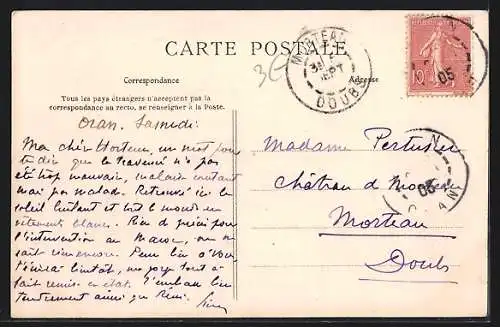 CARTE POSTALE
Correspondance
Adresse
Tous les pays étrangers n'acceptent pas la
correspondance au recto, se renseigner à la Poste.
MORTEAU
SEPT
DOUBS
10
05
05
ORAN
Oran. Samedi
Ma chère un mot pour
te dire que la traversée n'a pas
été trop mauvais, malade
mais pas malade. Retrouvé ici le
soleil et tout le monde en
vêtements blancs. Rien de précis pour
l'intervention au Maroc, on ne
sait rien encore. Peux tu
bientôt, tout à
fait remis en état. J'embrasse bien
tendrement ainsi que
Madame Pertusier
Château de
Morteau
Doubs